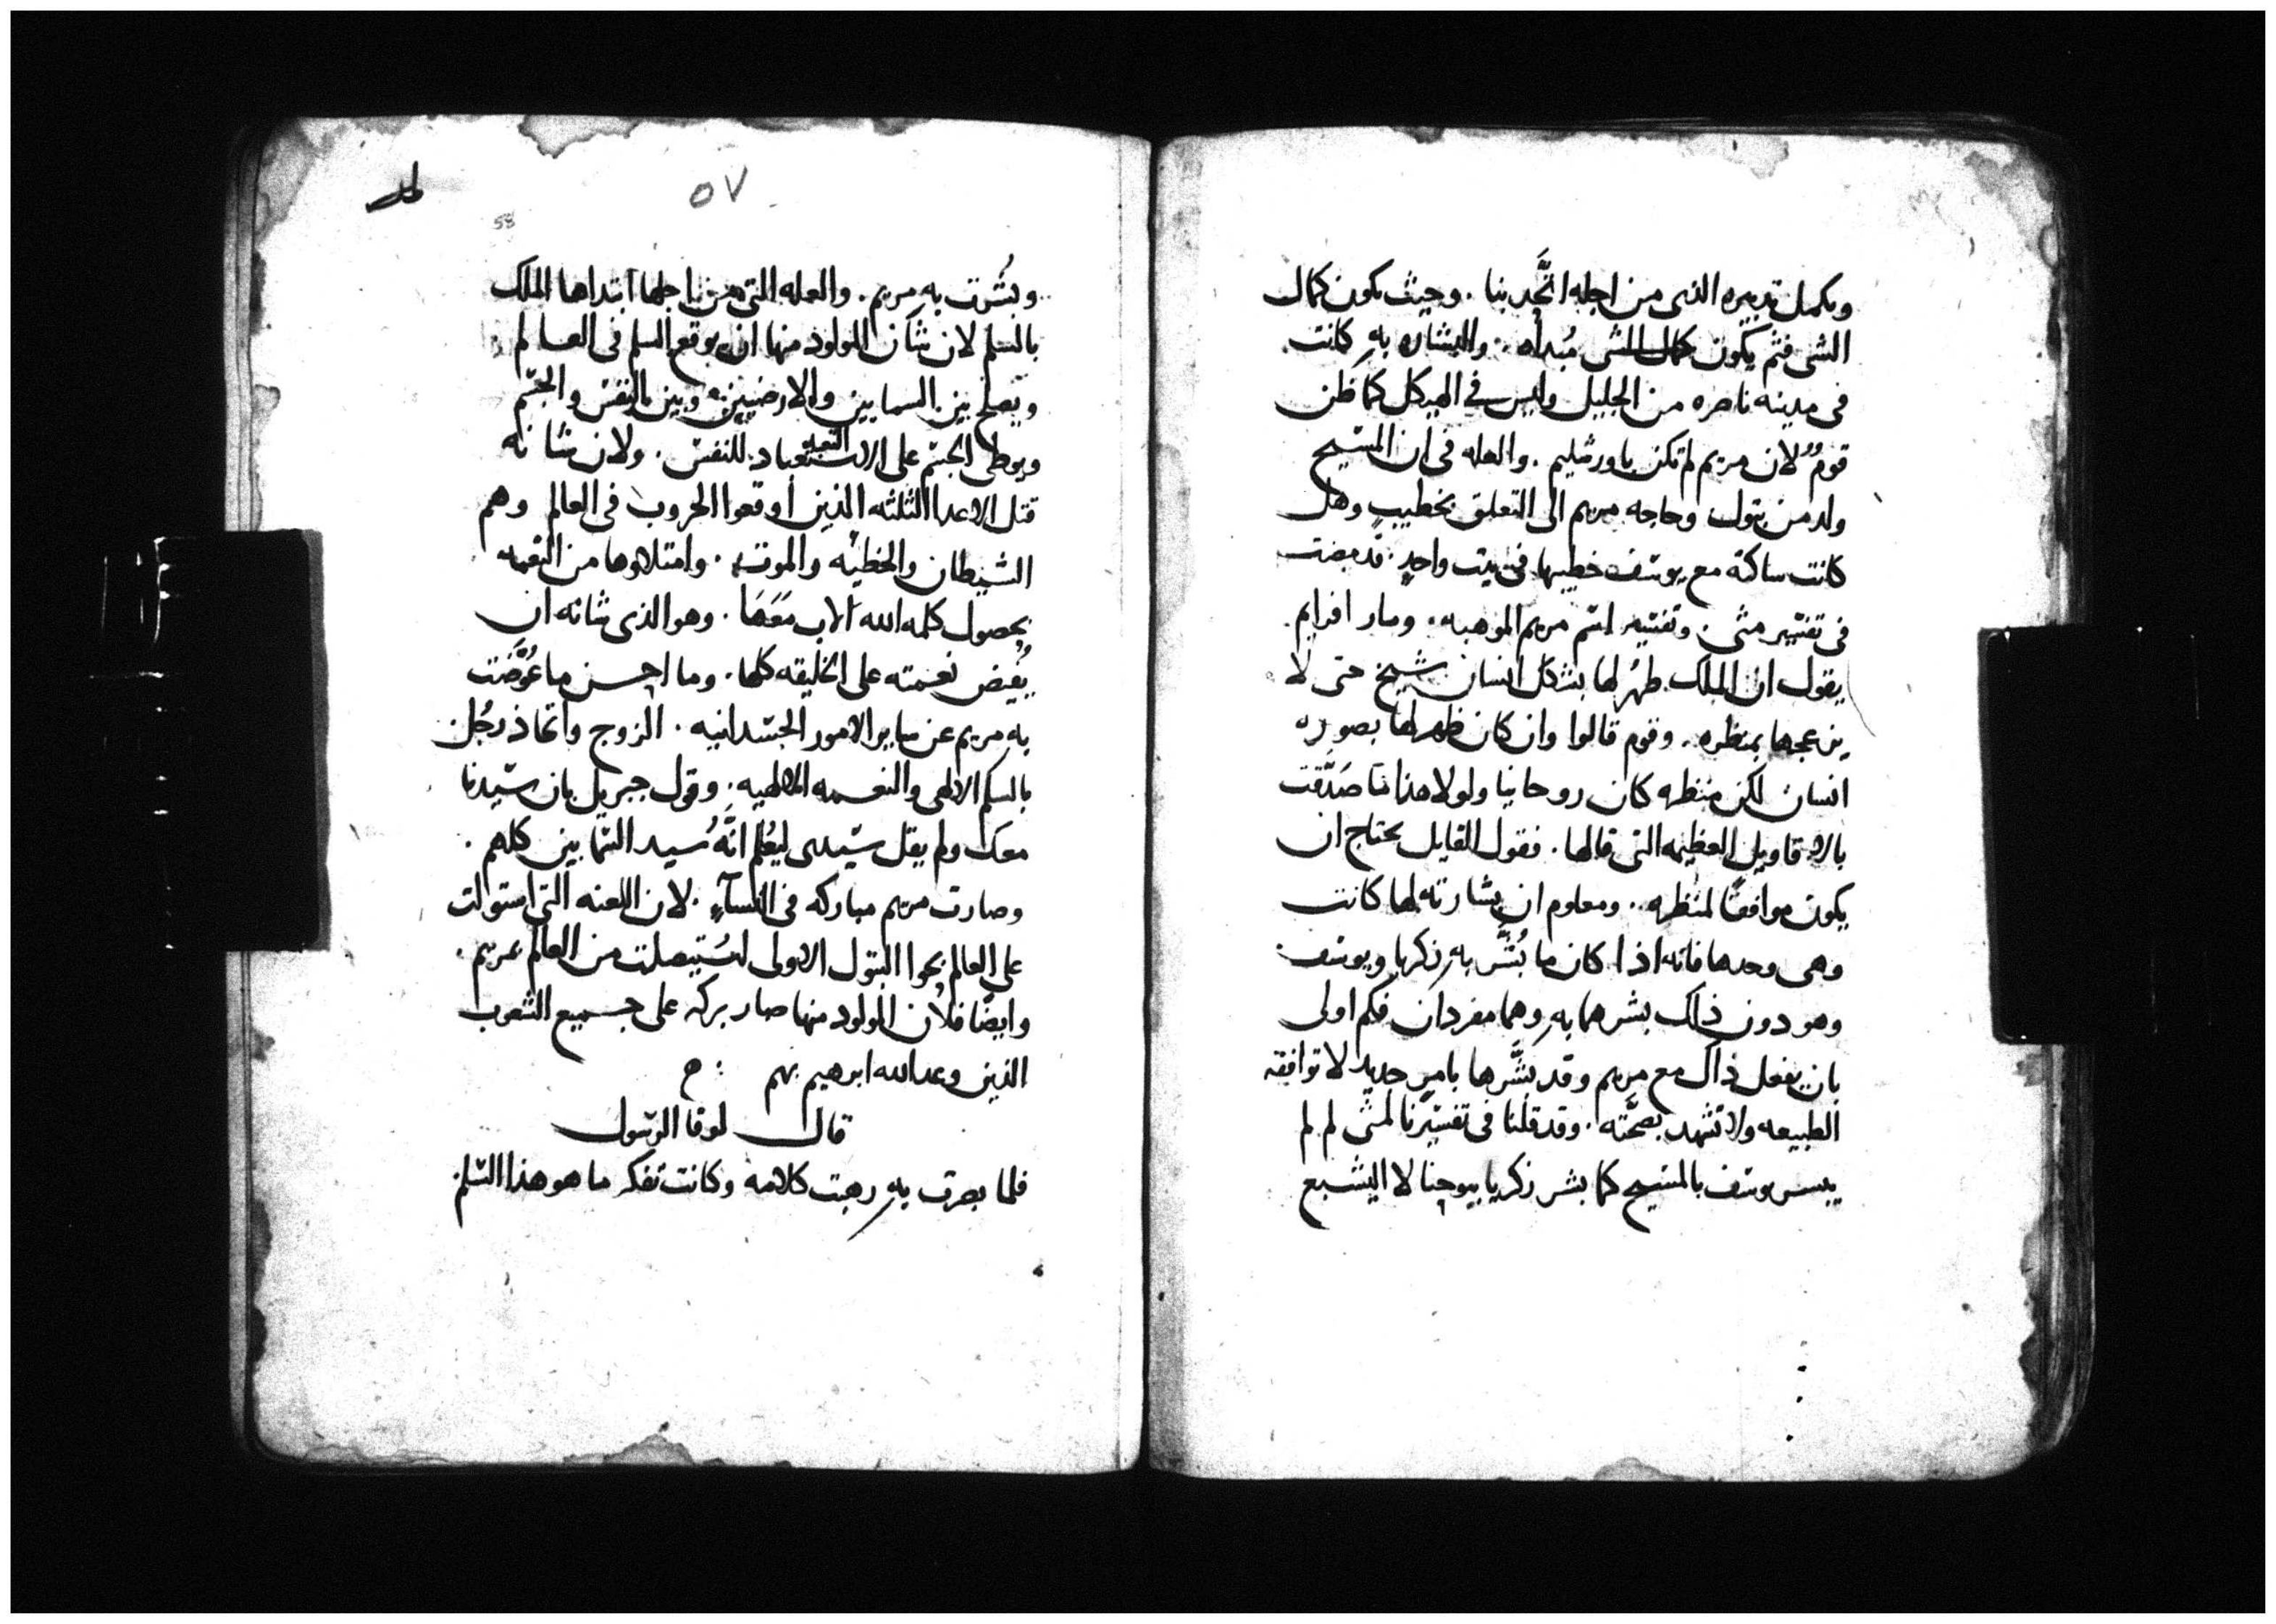 ويكمل تدبيره الذى من اجله اتَّحد بنا . وحيث يكون كمال
الشى فثم يكون كمال الشى مُبداه . والبشاره به كانت
فى مدينه ناصره من الجليل وليس فى الهيكل كما ظن
قومٌ لان مريم لم تكن باورشليم . والعله فى ان المسيح
ولد من بتول وحاجه مريم الى التعلق بخطيبٍ وهل
كانت ساكنة مع يوسف خطيبها فى بيت واحدٍ . قد مضت
فى تفسير متى . وتفسير اسم مريم الموهبه . ومار افرايم
يقول ان الملاك ظهر لها بشكل انسان شيخ حتى لا
ينزعجها بمنظره . وقوم قالوا وان كان ظهر لها بصوره
انسان لكن منظره كان روحانيا ولولا هذا لما صَدَّقت
بالاقاويل العظيمه التى قالها . فقول القايل يحتاج ان
يكون موافقًا لمنظره . ومعلوم ان بشارته لها كانت
وهى وحدها فانه اذا كان ما بُشَّر به زكريا ويوسف
وهو دون ذلك بشرهما به وهما مفردان فكم اولى
بان يفعل ذاك مع مريم وقد بشَّرها بامرٍ جديد لا توافقه
الطبيعه ولا تشهد بصحَّته . وقد قلنا فى تفسيرنا لمتى لم لم
يبسر يوسف بالمسيح كما بشر زكريا بيوحنا لا اليشبع
٥٧
58
وبُشرت به مريم . والعله التى من اجلها ابتداها الملك
بالسلم لان شان المولود منها ان يوقع السلم فى العالم
ويصلح بين السمايين والارضيين وبين النفس والجسم
ويوطى الجسم على الاستعباد للنفس . ولان شانه
قتل الاعدا الثلثه الذين أوقعوا الحروب فى العالم وهم
الشيطان والخطيه والموت . وامتلاوها من النعمه
بحصول كلمه الله الاب مَعَهَا . وهو الذى شانه ان
يُفيض نعمته على الخليقه كلها . وما احسن ما عُوِّضت
به مريم عن ساير الامور الجسدانيه . الزوج واتحاذ رجُل
بالسلم الالهى والنعمه الالهيه . وقول جبريل بان سيدنا
معك ولم يقل سيدى ليُعلم انَّهُ سيد السمايين كلهم .
وصارت مريم مباركه فى النسآءِ . لان اللعنه التى استولت
على العالم بحوا البتول الاولى استيصلت من العالم بمريم .
وايضًا فلان المولود منها صار بركه على جميع الشعوب
الذين وعد الله ابرهيم بهم
قال لوقا الرسول
فلما بصرت به رهبت كلامه وكانت تفكر ما هو هذا السلم